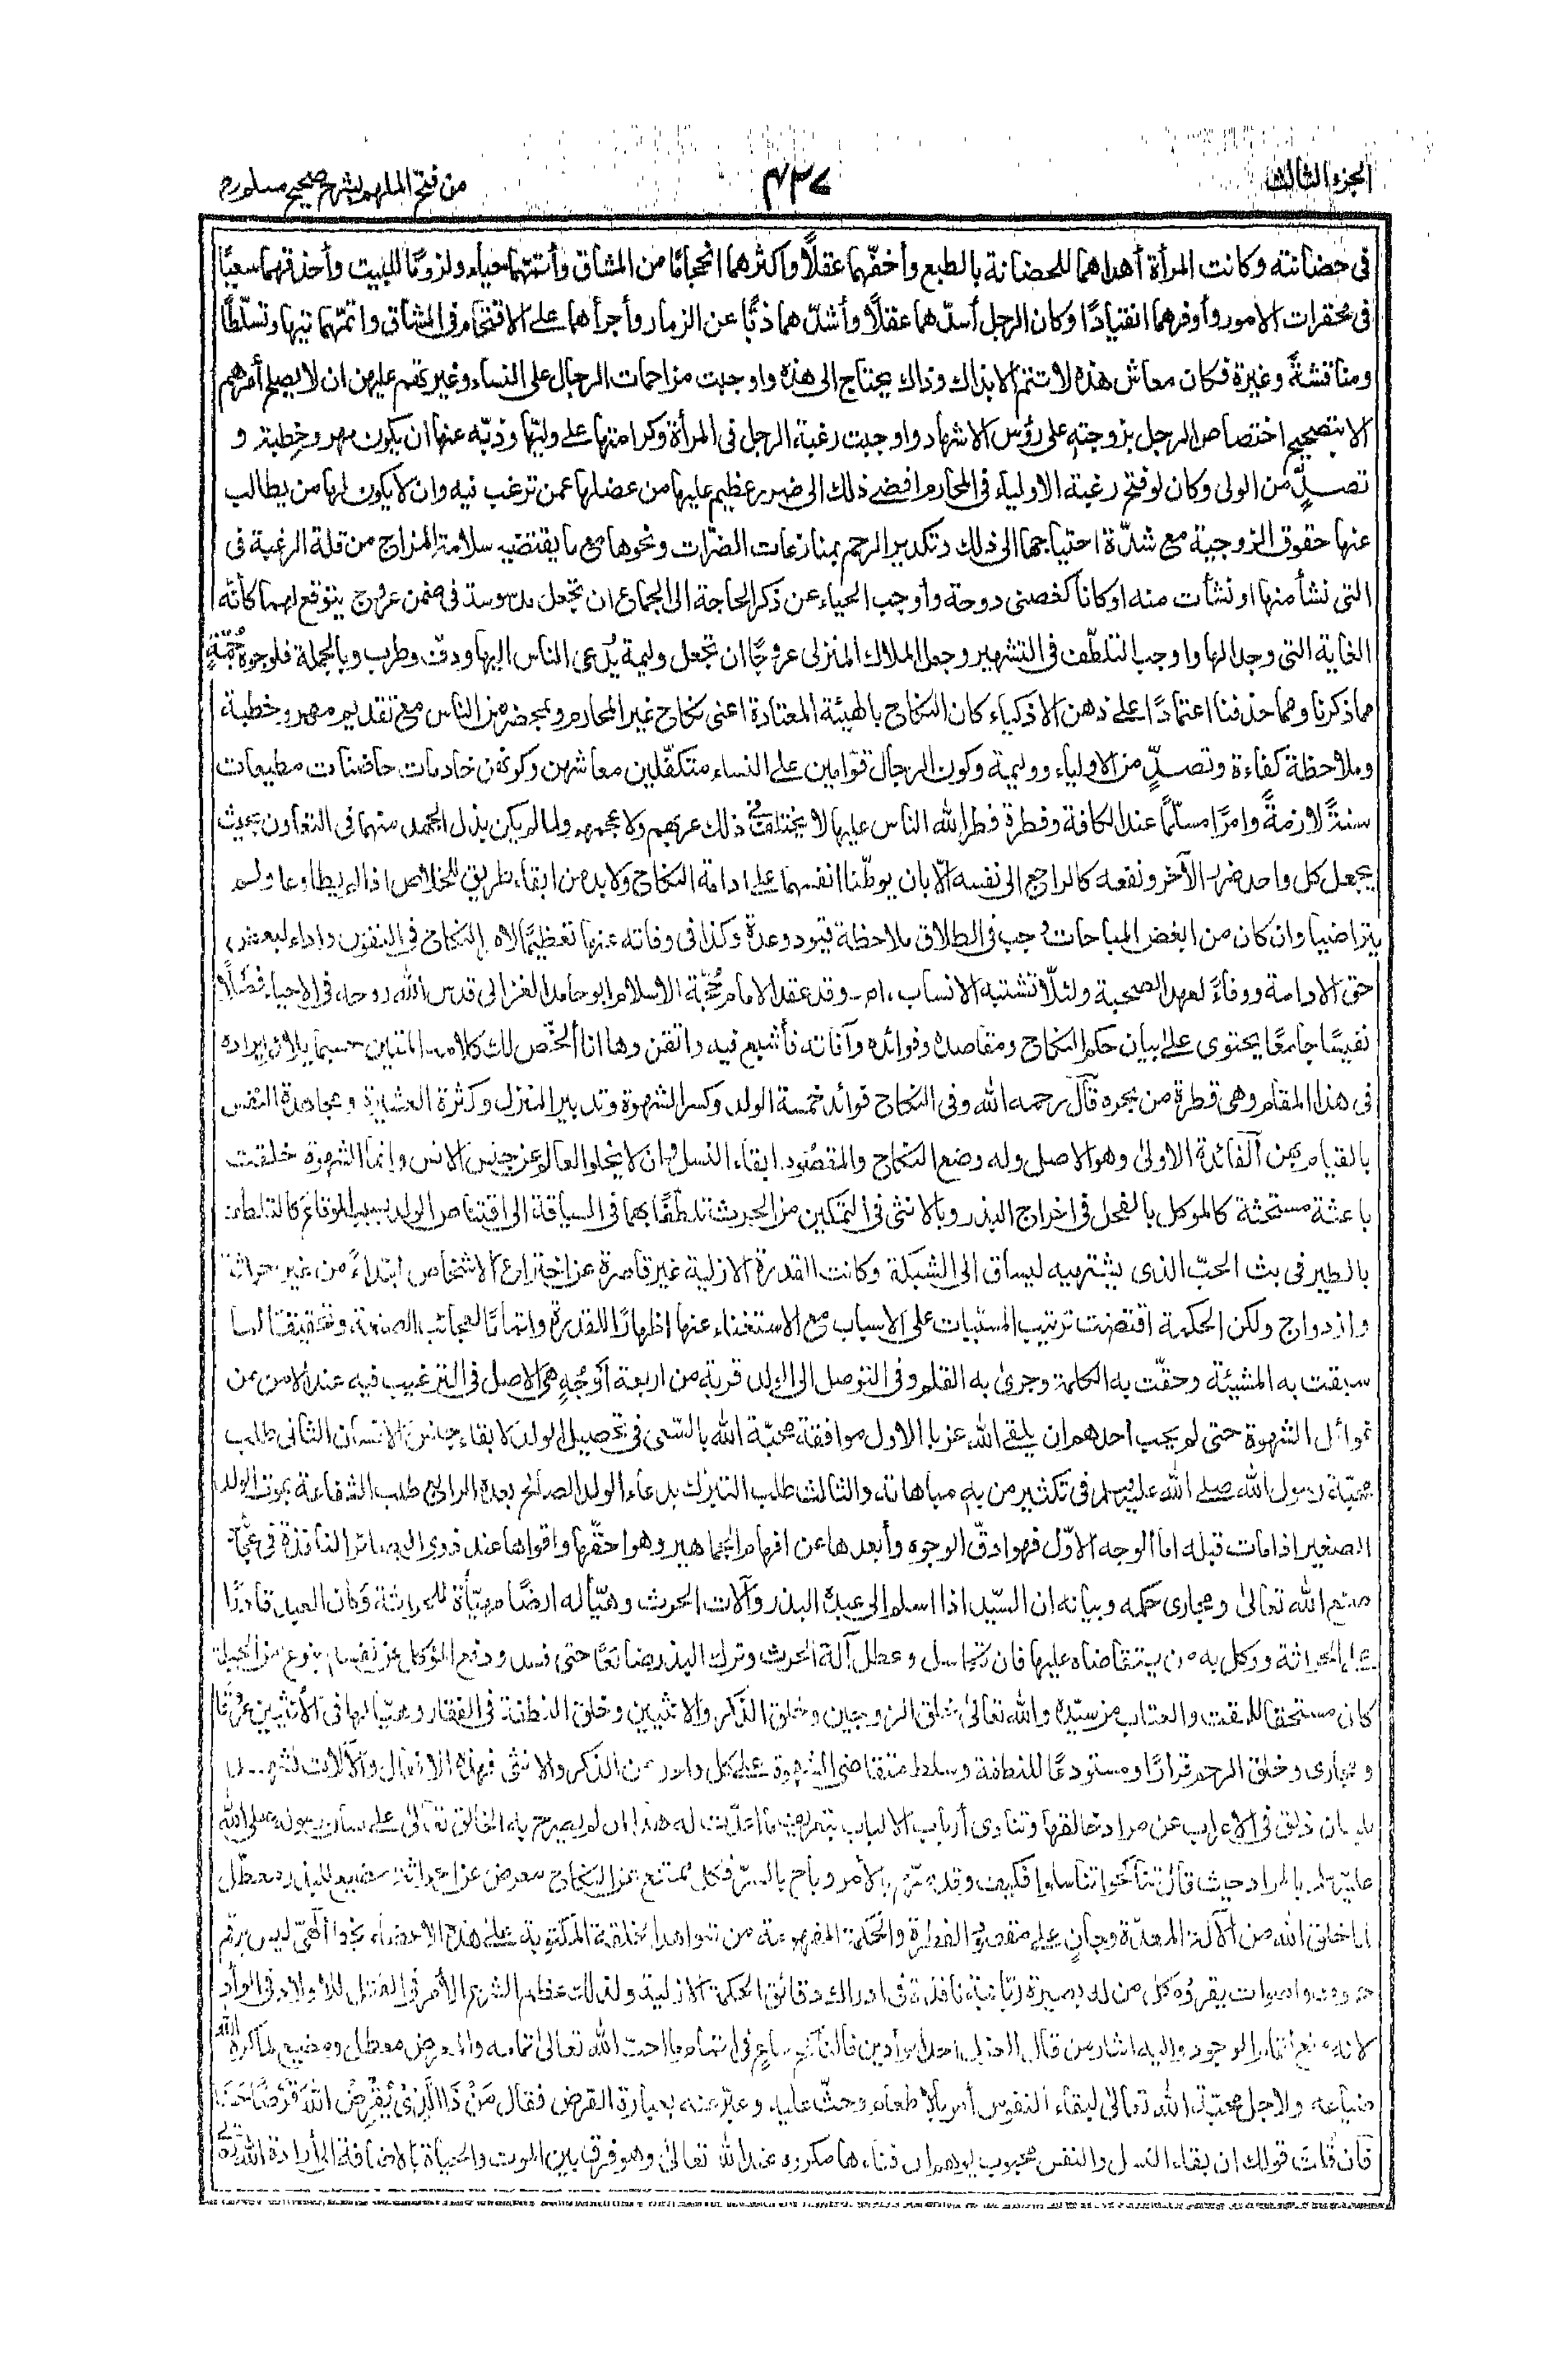 الجزء الثالث
٤٣٧
من فتح الملهم بشرح صحيح مسلم
فى حضانته وكانت المرأة أهداهما للحضانة بالطبع وأخفّهما عقلًا وأكثرهما انحجامًا من المشاق وأتمّهما حياء ولزومًا للبيت وأحذقهما سعيًا
فى محقرات الامور وأوفرهما انقيادًا وكان الرجل أسدّهما عقلًا وأشدّهما ذبًّا عن الذمار وأجرأهما على الاقتحام فى المشاق وأتمّهما تيها وتسلّطًا
ومناقشةً وغيرة فكان معاش هذه لا تتم الا بذاك وذاك يحتاج الى هذه واوجبت مزاحمات الرجال على النساء وغيرتهم عليهن ان لا يصلح أمرهم
الا بتصحيح اختصاص الرجل بزوجته على رؤس الاشهاد واوجبت رغبة الرجل فى المرأة وكرامتها على وليّها وذبّه عنها ان يكون مهر وخِطبة و
تصدٍّ من الولى وكان لو فتح رغبة الاولياء فى المحارم افضى ذلك الى ضرر عظيم عليها من عضلها عمن ترغب فيه وان لا يكون لها من يطالب
عنها حقوق الزوجية مع شدّة احتياجها الى ذلك وتكدير الرحم بمنازعات الضرّات ونحوها مع ما يقتضيه سلامة المزاج من قلة الرغبة فى
التى نشأ منها او نشأت منه او كانا كغصنى دوحة وأوجب الحياء عن ذكر الحاجة الى الجماع ان تجعل مدسوسة فى ضمن عروج يتوقع لهما كأنه
الغاية التى وجد لها واوجب التلطّف فى التشهير وجعل الملاك المنزلى عروجًا ان تجعل وليمة يُدعى الناس اليها ودفّ وطرب وبالجملة فلوجوه جُمّةٍ
مما ذكرنا ومما حذفنا اعتمادًا على ذهن الاذكياء كان النكاح بالهيئة المعتادة اعنى نكاح غير المحارم وبمحضر من الناس مع تقديم مهر وخطبة
وملاحظة كفاءة وتصدٍّ من الاولياء ووليمة وكون الرجال قوّامين على النساء متكفّلين معاشهن وكونهن خادمات حاضنات مطيعات
سنةً لازمةً وامرًا مسلّمًا عند الكافة وفطرة فطر الله الناس عليها لا يختلف فى ذلك عربهم ولا عجمهم ولما لم يكن بذل الجهد منهما فى التعاون بحيث
يجعل كل واحد ضرر الآخر ونفعه كالراجع الى نفسه الّا بان يوطّنا انفسهما على ادامة النكاح ولا بد من ابقاء طريق للخلاص اذا لم يطاوعا ولم
يتراضيا وان كان من ابغض المباحات وجب فى الطلاق ملاحظة قيود وعدة وكذا فى وفاته عنها تعظيمًا لامر النكاح فى النفوس واداء لبعض
حق الادامة ووفاءً لعهد الصحبة ولئلّا تشتبه الانساب، اھ۔ وقد عقد الامام حُجّة الاسلام ابو حامد الغزالى قدس الله روحه فى الاحياء فصلًا
نفيسًا جامعًا يحتوى على بيان حكم النكاح ومقاصده وفوائده وآفاته فأشبع فيه واتقن وها انا الخّص لك كلامه المتين حسبما يلائم ايراده
فى هذا المقام وهى قطرة من بحره قال رحمه الله وفى النكاح فوائد خمسة الولد وكسر الشهوة وتدبير المنزل وكثرة العشيرة ومجاهدة النفس
بالقيام بهن الفائدة الاولى وهو الاصل وله وضع النكاح والمقصود ابقاء النسل وان لا يخلو العالم عن جنس الانس وانما الشهوة خلقت
باعثة مستحثة كالموكل بالفحل فى اخراج البذر وبالانثى فى التمكين من الحرث تلطّفًا بهما فى السياقة الى اقتناص الولد بسبب الوقاع كالتلطف
بالطير فى بث الحبّ الذى يشتهيه ليساق الى الشبكة وكانت القدرة الازلية غير قاصرة عن اختراع الاشخاص ابتداءً من غير حراثة
وازدواج ولكن الحكمة اقتضت ترتيب المسبّبات على الاسباب مع الاستغناء عنها اظهارًا للقدرة واتمامًا لعجائب الصنعة وتحقيقًا لما
سبقت به المشيئة وحقّت به الكلمة وجرى به القلم وفى التوصل الى الولد قربة من اربعة أوجُهٍ هى الاصل فى الترغيب فيه عند الامن من
غوائل الشهوة حتى لم يحب احدهم ان يلقى الله عزبا الاول موافقة محبّة الله بالسّعى فى تحصيل الولد لابقاء جنس الانسان الثانى طلب
محبّة رسول الله صلى الله عليه وسلم فى تكثير من به مباهاته والثالث طلب التبرّك بدعاء الولد الصالح بعده الرابع طلب الشفاعة بموت الولد
الصغير اذا مات قبله اما الوجه الاوّل فهو ادقّ الوجوه وأبعدها عن افهام الجماهير وهو احقّها واقواها عند ذوى البصائر النافذة فى عجائب
صنع الله تعالى ومجارى حكمه وبيانه ان السيّد اذا اسلم الى عبده البذر وآلات الحرث وهيّأ له ارضًا مهيّأة للحراثة وكان العبد قادرًا
على الحراثة ووكل به من يتقاضاه عليها فان تكاسل وعطل آلة الحرث وترك البذر ضائعًا حتى فسد ودفع الموكل عن نفسه بنوع من الحيلة
كان مستحقا للمقت والعتاب من سيّده والله تعالى خلق الزوجين وخلق الذكر والانثيين وخلق النطفة فى الفقار وهيّأ لها فى الأنثيين عروقًا
ومجارى وخلق الرحم قرارًا ومستودعًا للنطفة وسلط متقاضى الشهوة على كل واحد من الذكر والانثى فهذه الافعال والآلات تشهد
بلسان ذلق فى الاعراب عن مراد خالقها وتنادى أرباب الالباب بتعريف ما اعدّت له هذا ان لم يصرح به الخالق تعالى على لسان رسوله صلى الله
عليه وسلم بالمراد حيث قال تناكحوا تناسلوا فكيف وقد صرّح بالأمر وباح بالسرّ فكل ممتنع عن النكاح معرض عن الحراثة مضيع للبذر معطّل
لما خلق الله من الآلة المعدّة وجانٍ على مقصود الفطرة والحكمة المفهومة من شواهد الخلقة المكتوبة على هذه الاعضاء بخط الٰهى ليس برقم
حروف واصوات يقرؤه كل من له بصيرة ربّانية نافذة فى ادراك دقائق الحكمة الازلية ولذلك عظم الشرع الأمر فى القتل للأولاد فى الوأد
لانه منع لتمام الوجود واليه اشار من قال العزل احد الوأدين فالناكح ساعٍ فى اتمام ما احبّ الله تعالى تمامه والمعرض معطل ومضيع لما كره الله
ضياعه ولاجل محبّة الله تعالى لبقاء النفوس أمر بالاطعام وحثّ عليه وعبّر عنه بعبارة القرض فقال مَنْ ذَا الَّذِىْ يُقْرِضُ اللّٰهَ قَرْضًا حَسَنًا
فان قلت قولك ان بقاء النسل والنفس محبوب يوهم ان فناءها مكروه عند الله تعالى وهو فرق بين الموت والحياة بالاضافة الى ارادة الله